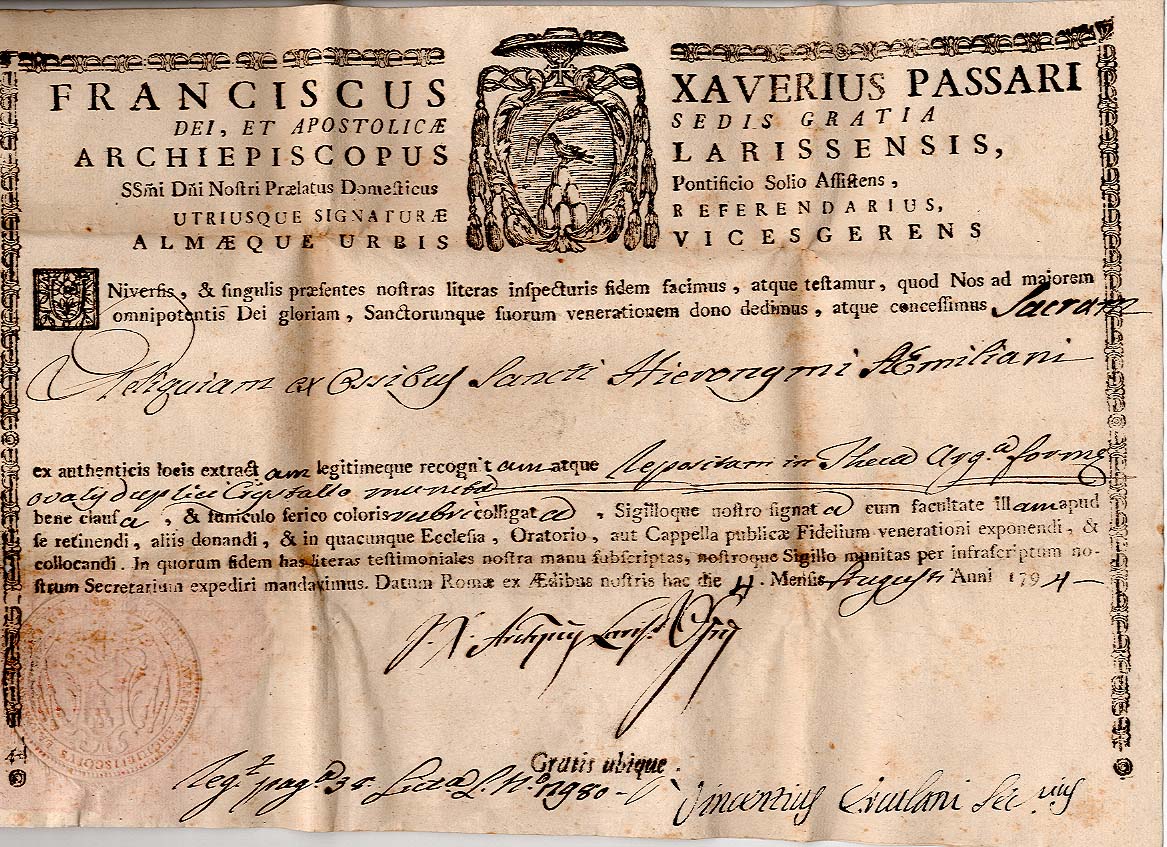 FRANCISCUS XAVERIUS PASSARI
DEI, ET APOSTOLICÆ SEDIS GRATIA
ARCHIEPISCOPUS LARISSENSIS,
SSm̃i Dñi Noſtri Prælatus Domeſticus Pontificio Solio Aſſiſtens,
UTRIUSQUE SIGNATURÆ REFERENDARIUS,
ALMÆQUE URBIS VICESGERENS
UNiverſis, & ſingulis præſentes noſtras literas inſpecturis fidem facimus, atque teſtamur, quod Nos ad majorem
omnipotentis Dei gloriam, Sanctorumque ſuorum venerationem dono dedimus, atque conceſſimus Sacram
Reliquiam ex Ossibus Sancti Hieronymi Æmiliani
ex authenticis locis extractam legitimeque recognitam atque Repositam in Theca Arg.a forme
ovalis duplici Crystallo munita
bene clauſa, & funiculo ſerico coloris rubri colligata, Sigilloque noſtro ſignata cum facultate illam apud
ſe retinendi, aliis donandi, & in quacunque Eccleſia, Oratorio, aut Cappella publicæ Fidelium venerationi exponendi, &
collocandi. In quorum fidem has literas teſtimoniales noſtra manu ſubſcriptas, noſtroque Sigillo munitas per infraſcriptum no-
ſtrum Secretarium expediri mandavimus. Datum Romæ ex Ædibus noſtris hac die 4. Menſis Augusti Anni 1794
Gratis ubique.
Vincentius